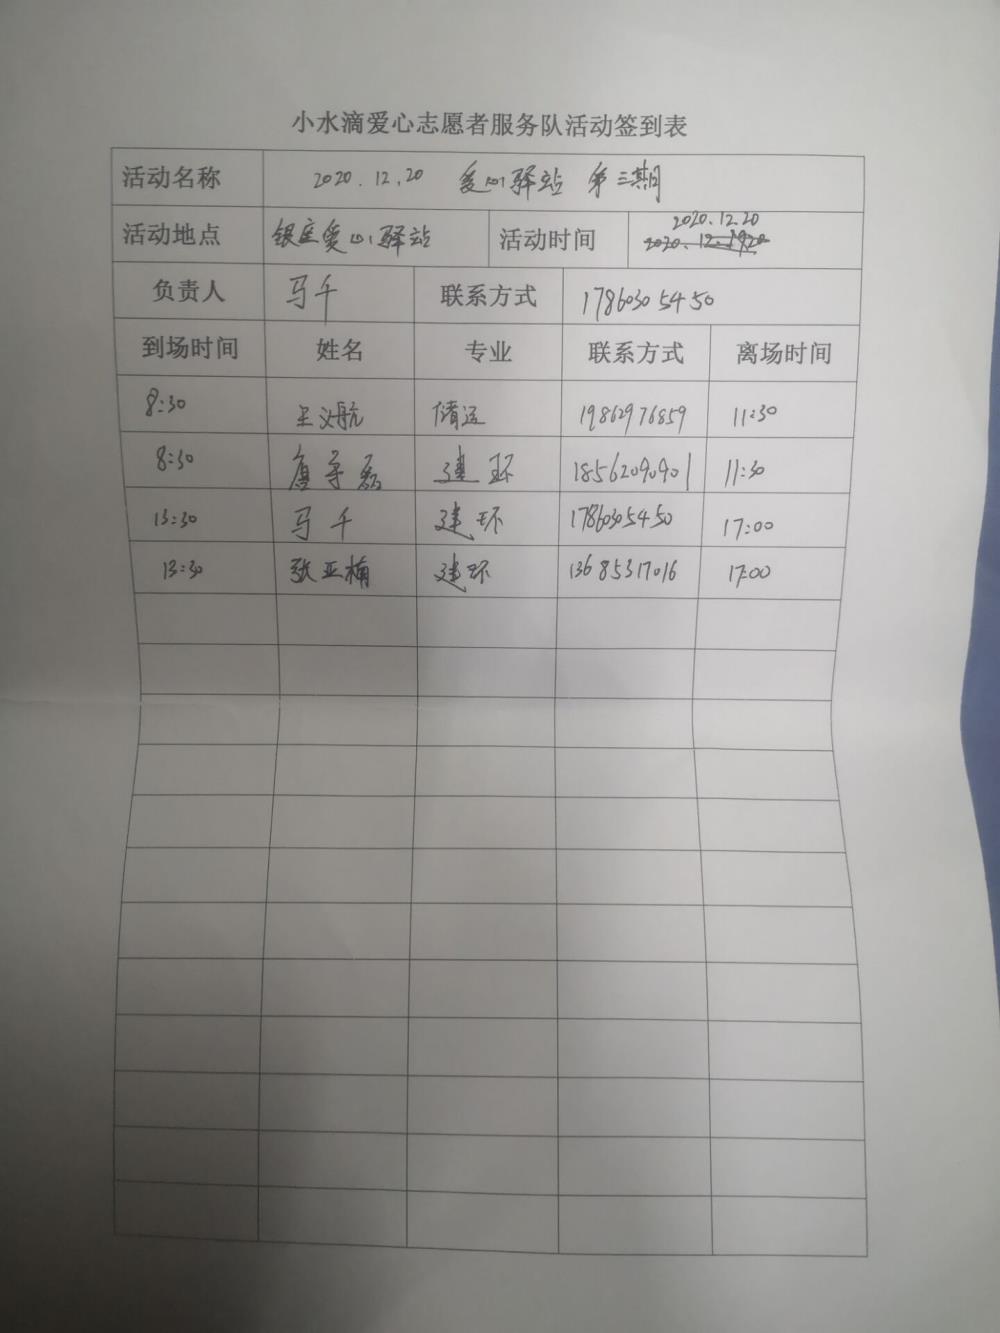 小水滴爱心志愿者服务队活动签到表
活动名称 2020.12.20 爱心驿站 第三期
活动地点 银座爱心驿站 活动时间 2020.12.20
负责人 马千 联系方式 17860305450
到场时间 姓名 专业 联系方式 离场时间
8:30 王文航 储运 19862976859 11:30
8:30 唐守磊 建环 18562090901 11:30
13:30 马千 建环 17860305450 17:00
13:30 张亚楠 建环 13685317016 17:00